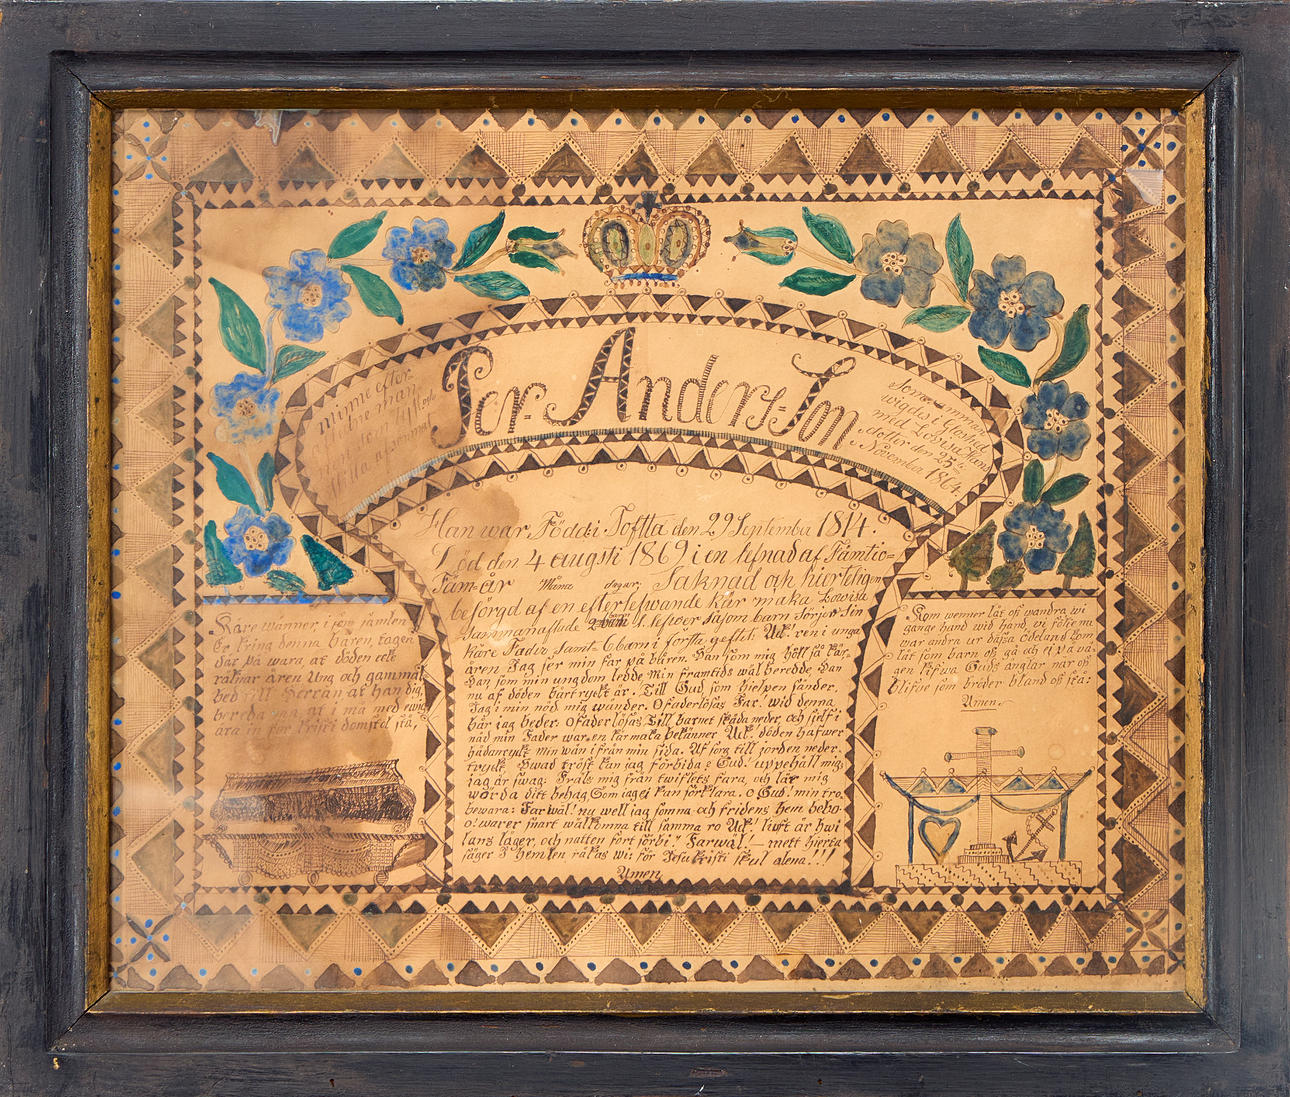 minne efter
Per Anders-Son
Som ... ...
wigdes i ...
med Lovisa Hans
dotter den 25te
November 1864.
Han war Född i Toftta den 29 Septembr 1814.
Död den 4 augsti 1869 i en lefnad af Fämtio-
Fäm år Måna dagar, Saknad och hierteligen
besörgd af en efterlefwande kär maka Lovisa
sammanaflade 2 barn
kära Fader samt 6 barn i första giftet. Ack ren i unga
åren Jag ser min far på båren. Han som mig höll så kär.
Han som min ungdom ledde Min framtids wäl beredde Han
nu af döden bårt ryckt är. Till Gud som hielpen sänder.
Jag i min nöd mig wänder. O faderlösas Far. wid denna
bår iag beder. O faderlösas Till barnet skåda neder, och sielf i
nåd min Fader war. en kär maka bekänner Ack. döden hafwer
hädanryckt Min wän i från min sida. Af som till jorden neder.
tryckt. Hwad tröst kan jag förbida? Gud! uppehåll mig,
iag är swag: Fräls mig från twiflets fara, och lär mig
wörda ditt behag, Som iag ei kan förklara. O Gud! min tro.
bewara: Farwäl! nu well iag somna och fridens hem bebo-
o! warer snart wälkomna till samma ro Ack! lifft är hwi
lans läger, och natten fort förbi" Farwäl! - mett hierta
säger I hemlen råkas wi för Jesu kristi skul alena.!!!
Amen,
Käre wänner som samlen
Er kring denna båren, tagen
där på wara, at döden eck
räknar åren Ung och gammal
bed till Herran at han dig
bereda må, at i må med ewig
ära in för kristi domstol stå,
Kom wenner låt oss wandra wi
gånge hand wid hand, wi följe nu
war andra ur dässa ödeland kom
låt som barn oss gå och ei på wä-
gen kifwa Guds änglar när oss
blifve som bröder bland oss stå:
Amen.